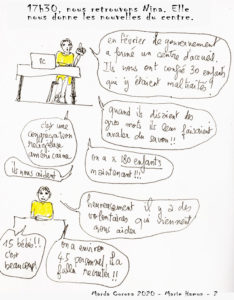 17h30, nous retrouvons Nina. Elle
nous donne les nouvelles du centre.
en février le gouvernement
a fermé un centre d'accueil.
Ils nous ont confié 30 enfants
qui y étaient maltraités !
PC
quand ils disaient des
gros mots ils leur faisaient
avaler du savon !!
c'est une
congrégation
religieuse
américaine
ils nous aident
on a 180 enfants
maintenant !!!
heureusement il y a des
volontaires qui viennent
nous aider
15 bébés !!
c'est
beaucoup
on a environ
45 personnel, il a
fallu recruter !!
2020 - Marie - 2